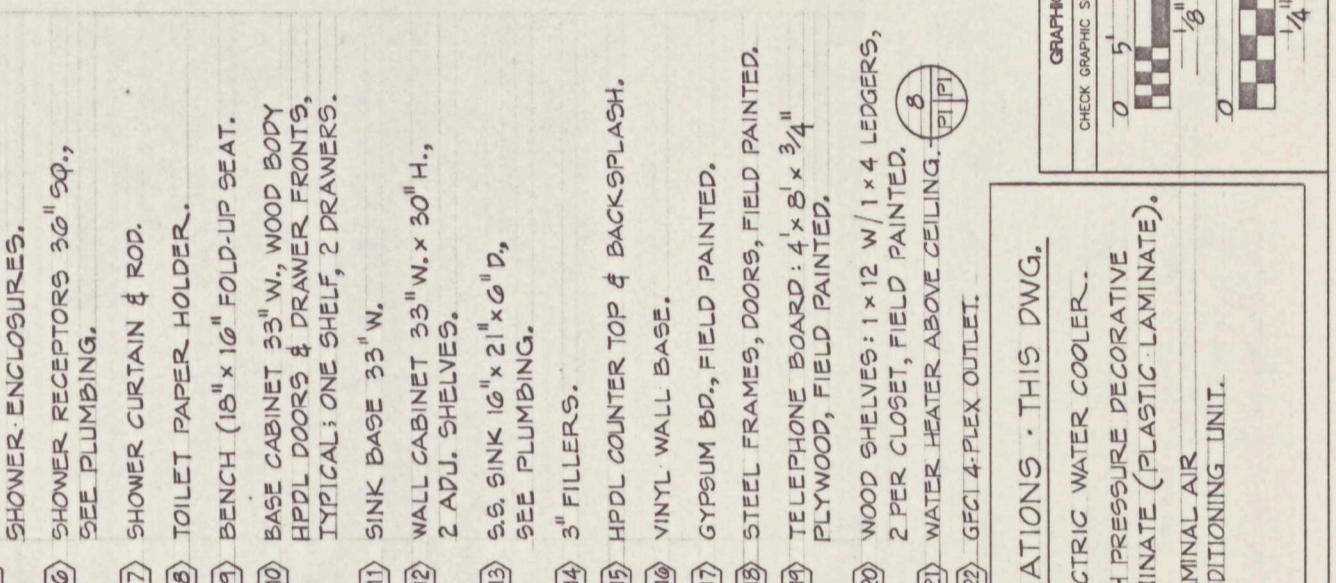 SHOWER ENCLOSURES.
6 SHOWER RECEPTORS 36" SQ.,
SEE PLUMBING.
7 SHOWER CURTAIN & ROD.
8 TOILET PAPER HOLDER.
9 BENCH (18" x 16" FOLD-UP SEAT.
10 BASE CABINET 33" W., WOOD BODY
HPDL DOORS & DRAWER FRONTS,
TYPICAL: ONE SHELF, 2 DRAWERS.
11 SINK BASE 33" W.
12 WALL CABINET 33" W. x 30" H.,
2 ADJ. SHELVES.
13 S.S. SINK 16" x 21" x 6" D.,
SEE PLUMBING.
14 3" FILLERS.
15 HPDL COUNTER TOP & BACKSPLASH.
16 VINYL WALL BASE.
17 GYPSUM BD., FIELD PAINTED.
18 STEEL FRAMES, DOORS, FIELD PAINTED.
19 TELEPHONE BOARD: 4' x 8' x 3/4"
PLYWOOD, FIELD PAINTED.
20 WOOD SHELVES: 1 x 12 W/ 1 x 4 LEDGERS,
2 PER CLOSET, FIELD PAINTED.
21 WATER HEATER ABOVE CEILING.
8
P1 P1
22 GFCI 4-PLEX OUTLET.
ATIONS · THIS DWG.
CTRIC WATER COOLER.
H PRESSURE DECORATIVE
INATE (PLASTIC LAMINATE).
MINAL AIR
DITIONING UNIT.
GRAPHIC
CHECK GRAPHIC S
0 5'
1/8"
0
1/4"